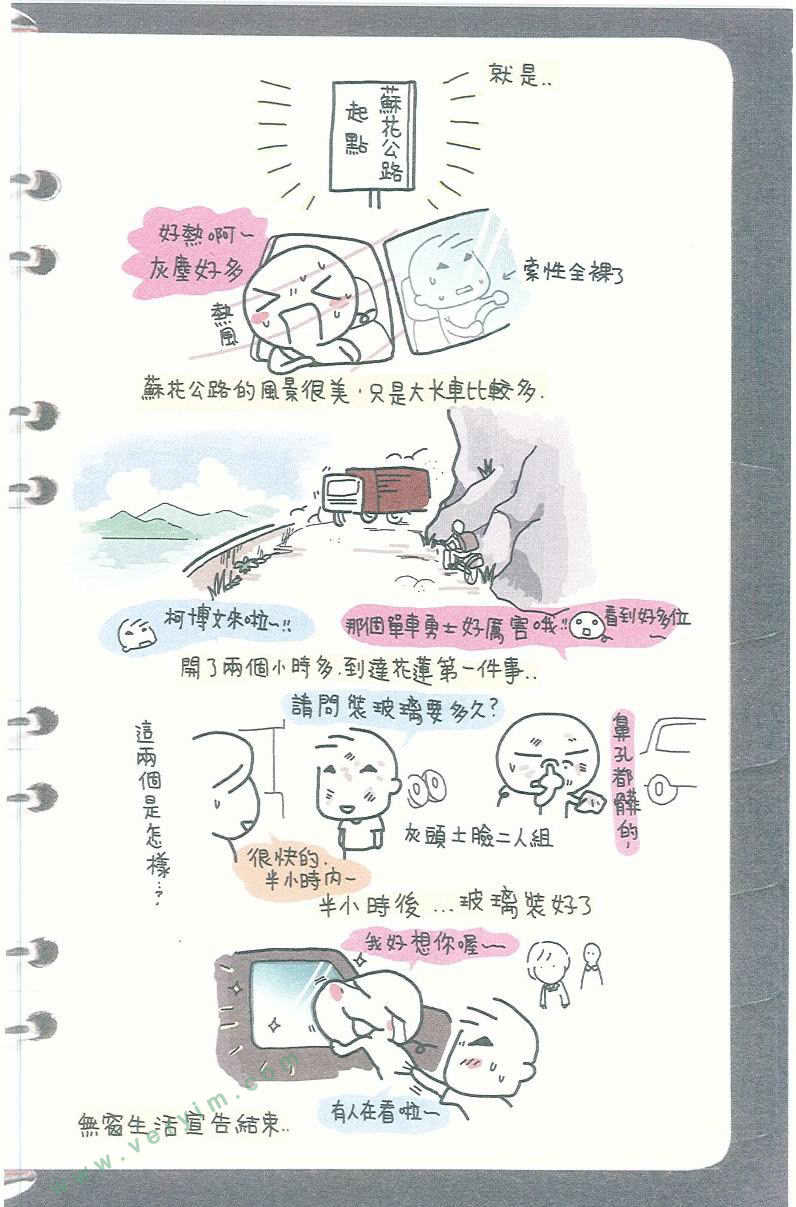 就是..
蘇花公路
起點
好熱啊~
灰塵好多
熱風
索性全裸了
蘇花公路的風景很美,只是大卡車比較多.
柯博文來啦~!!
那個單車勇士好厲害哦!!
看到好多位~
開了兩個小時多.到達花蓮第一件事..
請問裝玻璃要多久?
這兩個是怎樣...?
鼻孔都髒的~
灰頭土臉二人組
很快的.
半小時內~
半小時後...玻璃裝好了
我好想你喔~~
有人在看啦~
無窗生活宣告結束..
www.veryim.com